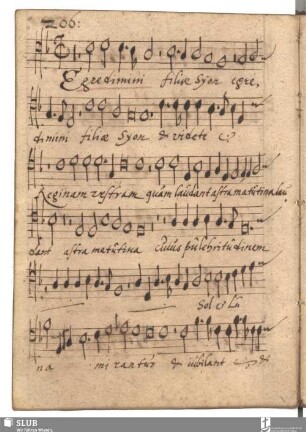 200:
Egredimini filiæ Syon egre,
dimini filiæ Syon & videte
Reginam vestram quam laudant astra matutina lau
dant astra matutina cuius pulchritudinem
Sol et lu
na mi rantur & iubilant &
SLUB
Wir führen Wissen.